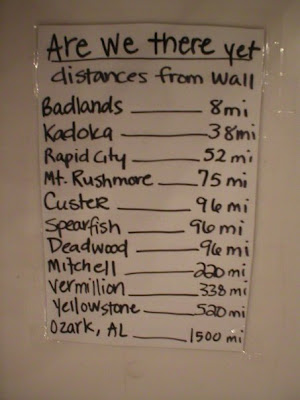 Are We there yet
distances from Wall
Badlands 8mi
Kadoka 38mi
Rapid City 52 mi
Mt. Rushmore 75 mi
Custer 96 mi
Spearfish 96 mi
Deadwood 96 mi
Mitchell 220 mi
Vermillion 338 mi
Yellowstone 520 mi
Ozark, AL 1500 mi